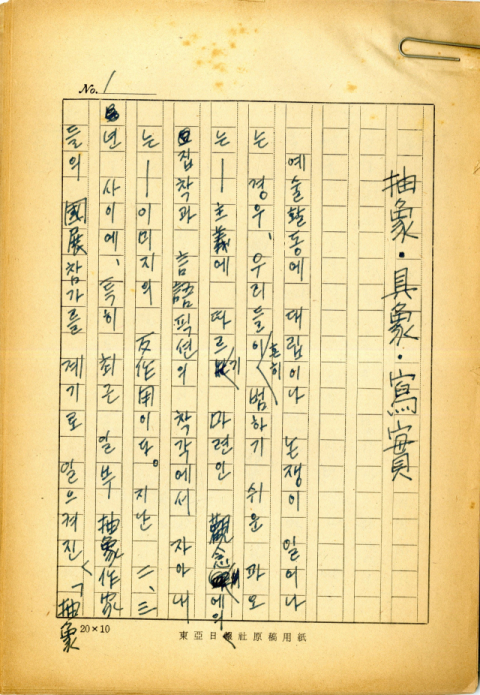 No. 1
抽象·具象·寫實
예술활동에 대립이나 논쟁이 일어나
는 경우, 우리들이 흔히 범하기 쉬운 과오
는 — 主義에 따르기 마련인 觀念에의
집착과 言語픽션의 착각에서 자아내
는 — 이미지의 反作用이다. 지난 二、三
년 사이에, 특히 최근 일부 抽象作家
들의 國展참가를 계기로 일으켜진 「抽象
20×10
東亞日報社原稿用紙